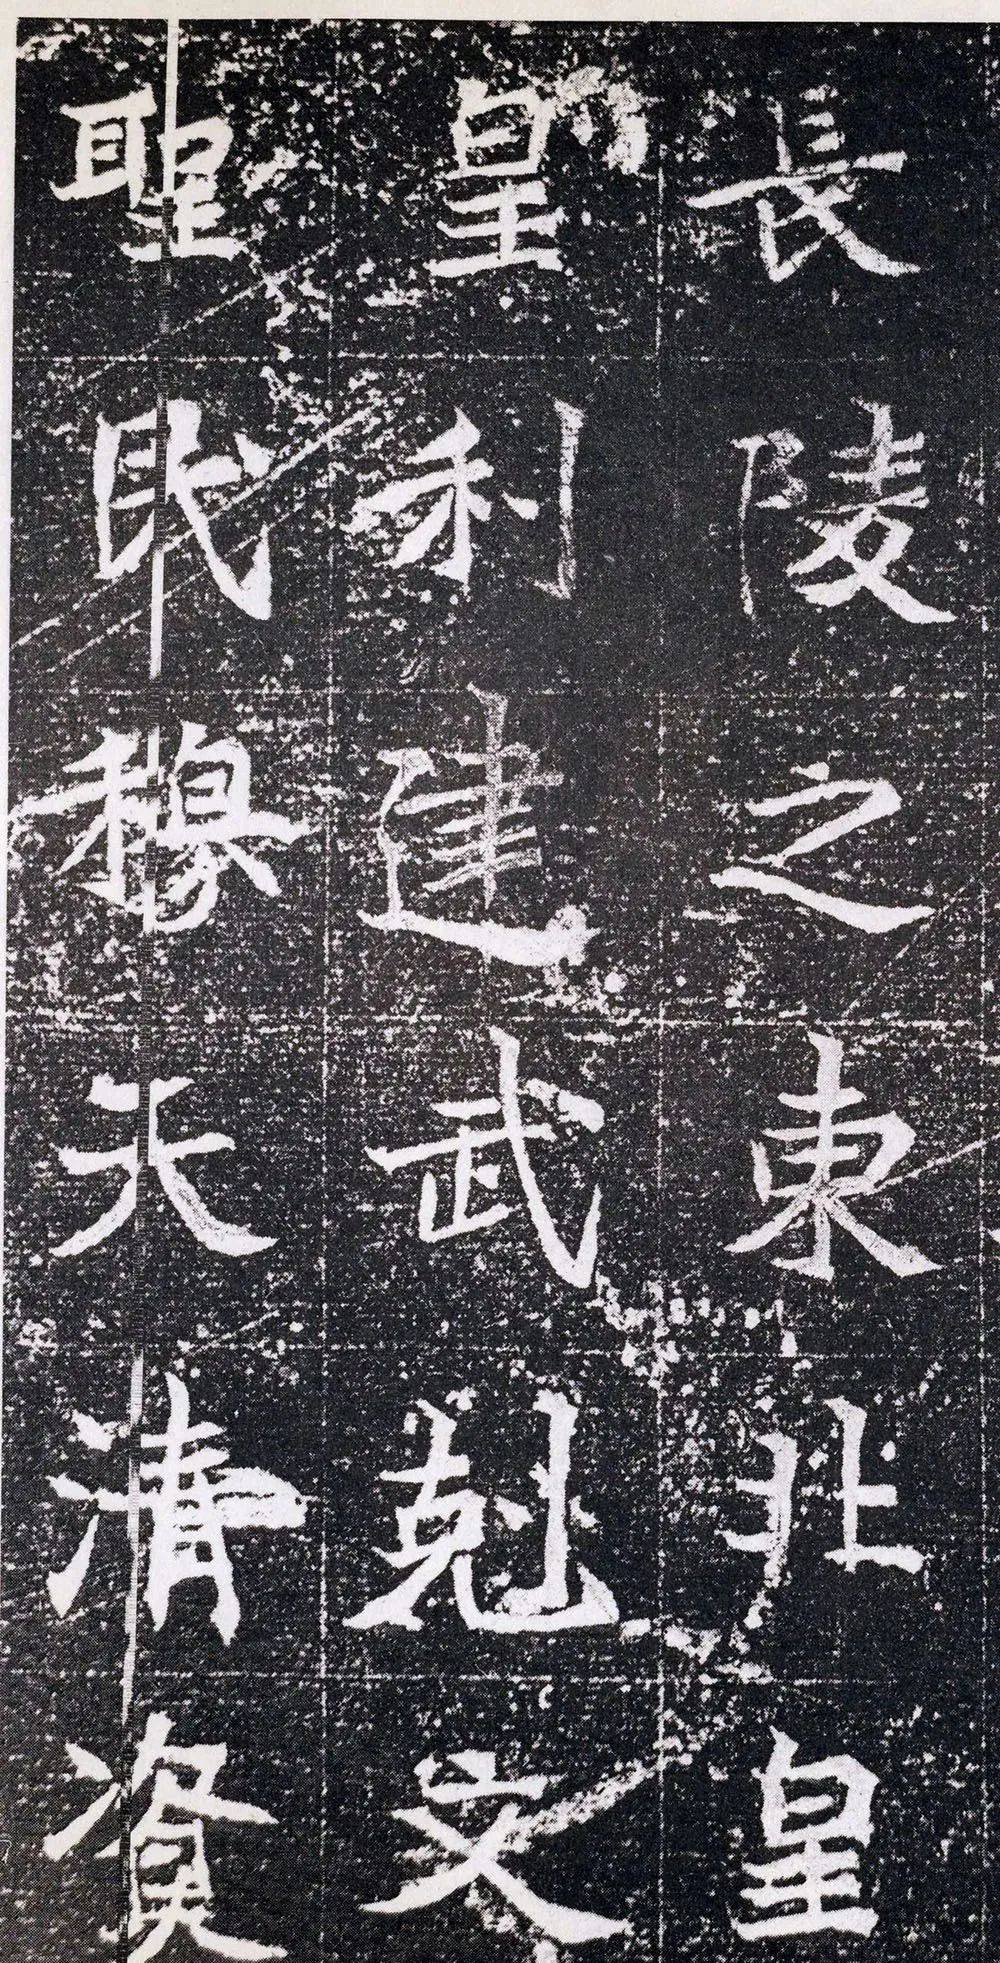 長陵之東北皇
皇利建武剋文
聖民穆天清資